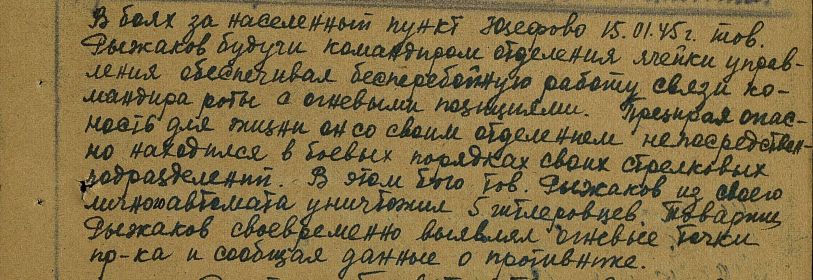 В боях за населенный пункт Юзефово 15.01.45 г. тов.
Рыжаков будучи командиром отделения ячейки управ-
ления обеспечивал бесперебойную работу связи ко-
мандира роты с огневыми позициями. Презирая опас-
ность для жизни он со своим отделением непосредствен-
но находился в боевых порядках своих стрелковых
подразделений. В этом бою тов. Рыжаков из своего
личного автомата уничтожил 5 гитлеровцев. Товарищ
Рыжаков своевременно выявлял огневые точки
пр-ка и сообщая данные о противнике.